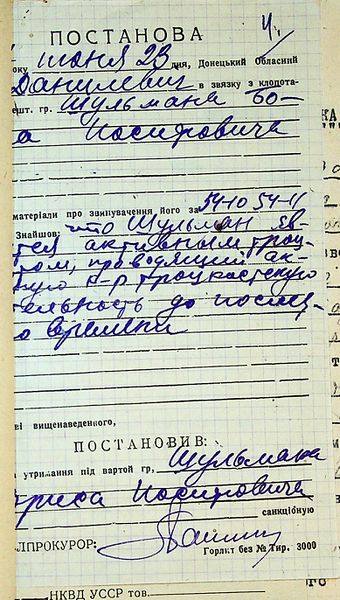 4.
ПОСТАНОВА
року июня 23 дня, Донецький Обласний
Данилевич в звязку з клопота-
решт. гр. Шульмана Бо-
а Иосифовича
матеріали про звинувачення його за 54-10 54-11
Знайшов: что Шульман яв-
тся активным троц-
том, проводящий ак-
ную к-р троцкистскую
тельность до послед-
о времени
ві вищенаведеного,
ПОСТАНОВИВ:
а утримання під вартой гр. Шульмана
риса Иосифовича
санкційную
ЛПРОКУРОР:
Горліт без № Тир. 3000
НКВД УССР тов.